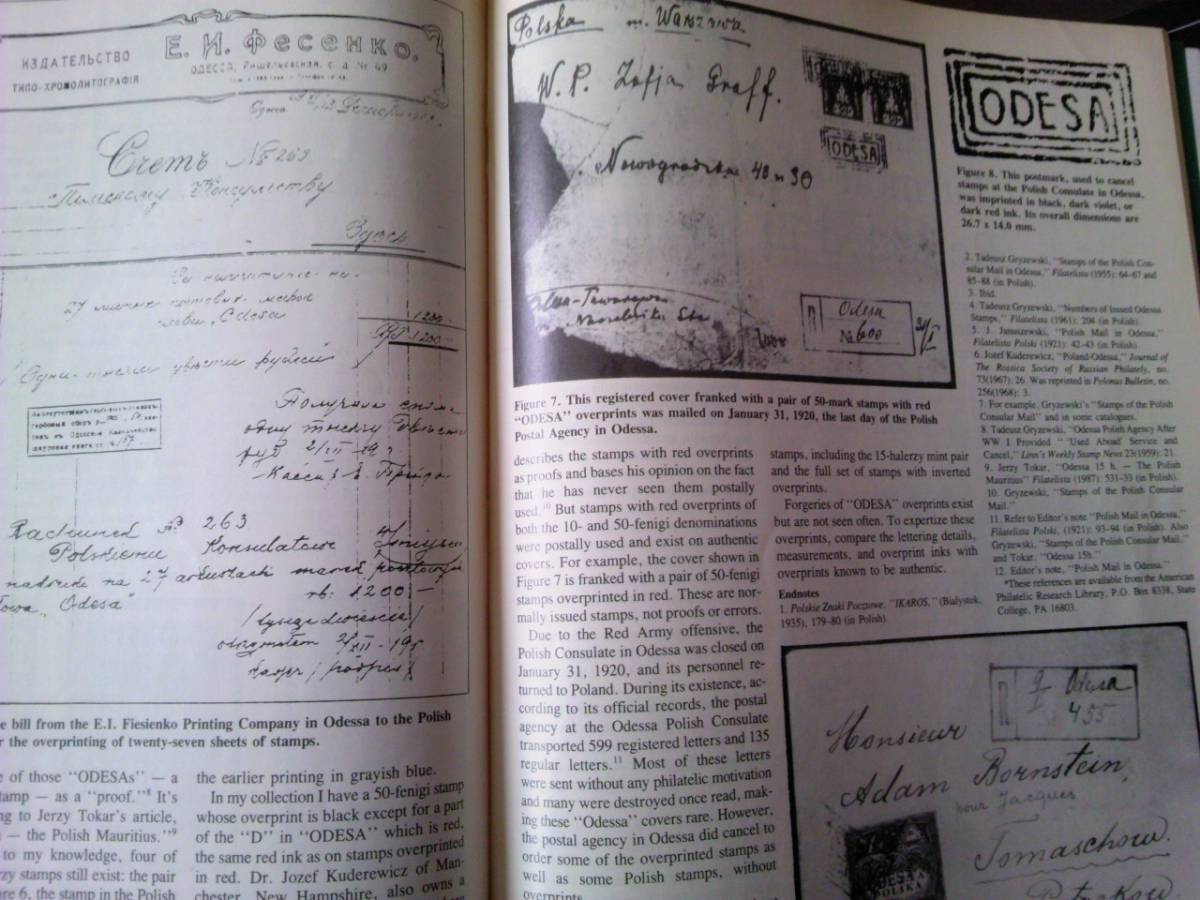 ИЗДАТЕЛЬСТВО
ТИПО-ХРОМОЛИТОГРАФІЯ
Е. И. Фесенко.
ОДЕССА, Ришельевская, с. д. № 49.
Одесса
Счетъ № 263
Консульству
27 листовъ почтовых марок
слова „Odesa”
1200
1200
Одну тысячу двести рублей
Получил
одну тысячу
Rachunek № 263
Polskiemu Konsulatowi
nadruk na 27 arkuszach marek
słowa „Odesa”
rb. 1200.—
e bill from the E.I. Fiesienko Printing Company in Odessa to the Polish
r the overprinting of twenty-seven sheets of stamps.
e of those "ODESAs" — a
tamp — as a "proof."⁸ It's
ng to Jerzy Tokar's article,
— the Polish Mauritius."⁹
to my knowledge, four of
rzy stamps still exist: the pair
re 6, the stamp in the Polish
the earlier printing in grayish blue.
In my collection I have a 50-fenigi stamp
whose overprint is black except for a part
of the "D" in "ODESA" which is red,
the same red ink as on stamps overprinted
in red. Dr. Jozef Kuderewicz of Man-
chester, New Hampshire, also owns a
Polska m. Warszawa
W. P. Zofja Graff.
ODESA
Nowogrodzka 48 m 30
Odesa
№ 600
31/I
Figure 7. This registered cover franked with a pair of 50-mark stamps with red
"ODESA" overprints was mailed on January 31, 1920, the last day of the Polish
Postal Agency in Odessa.
describes the stamps with red overprints
as proofs and bases his opinion on the fact
that he has never seen them postally
used.¹⁰ But stamps with red overprints of
both the 10- and 50-fenigi denominations
were postally used and exist on authentic
covers. For example, the cover shown in
Figure 7 is franked with a pair of 50-fenigi
stamps overprinted in red. These are nor-
mally issued stamps, not proofs or errors.
Due to the Red Army offensive, the
Polish Consulate in Odessa was closed on
January 31, 1920, and its personnel re-
turned to Poland. During its existence, ac-
cording to its official records, the postal
agency at the Odessa Polish Consulate
transported 599 registered letters and 135
regular letters.¹¹ Most of these letters
were sent without any philatelic motivation
and many were destroyed once read, mak-
ing these "Odessa" covers rare. However,
the postal agency in Odessa did cancel to
order some of the overprinted stamps as
well as some Polish stamps, without
overprints.
stamps, including the 15-halerzy mint pair
and the full set of stamps with inverted
overprints.
Forgeries of "ODESA" overprints exist
but are not seen often. To expertize these
overprints, compare the lettering details,
measurements, and overprint inks with
overprints known to be authentic.
Endnotes
1. Polskie Znaki Pocztowe, "IKAROS," (Bialystok,
1935), 179–80 (in Polish).
ODESA
Figure 8. This postmark, used to cancel
stamps at the Polish Consulate in Odessa,
was imprinted in black, dark violet, or
dark red ink. Its overall dimensions are
26.7 x 14.0 mm.
2. Tadeusz Gryzewski, "Stamps of the Polish Con-
sular Mail in Odessa," Filatelista (1955): 64–67 and
85–88 (in Polish).
3. Ibid.
4. Tadeusz Gryzewski, "Numbers of Issued Odessa
Stamps," Filatelista (1961): 204 (in Polish).
5. J. Januszewski, "Polish Mail in Odessa,"
Filatelista Polski (1921): 42–43 (in Polish).
6. Jozef Kuderewicz, "Poland-Odessa," Journal of
The Rossica Society of Russian Philately, no.
73(1967): 26. Was reprinted in Polonus Bulletin, no.
256(1968): 3.
7. For example, Gryzewski's "Stamps of the Polish
Consular Mail" and in some catalogues.
8. Tadeusz Gryzewski, "Odessa Polish Agency After
WW 1 Provided "Used Abroad' Service and
Cancel," Linn's Weekly Stamp News 23(1959): 21.
9. Jerzy Tokar, "Odessa 15 h. — The Polish
Mauritius" Filatelista (1987): 531–33 (in Polish).
10. Gryzewski, "Stamps of the Polish Consular
Mail."
11. Refer to Editor's note "Polish Mail in Odessa,"
Filatelista Polski, (1921): 93–94 (in Polish). Also
Gryzewski, "Stamps of the Polish Consular Mail,"
and Tokar, "Odessa 15h."
12. Editor's note, "Polish Mail in Odessa."
*These references are available from the American
Philatelic Research Library, P.O. Box 8338, State
College, PA 16803.
Odesa
455
Monsieur
Adam Bornstein,
pour Jacques
Tomaschow.
ODESA
POLSKA